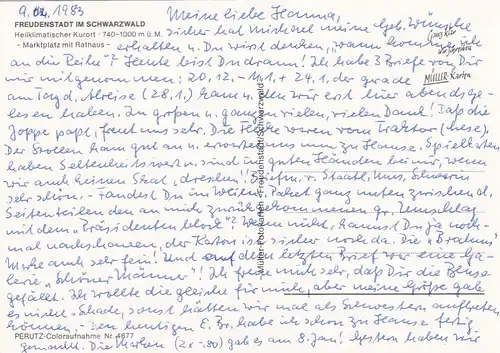 9.02.1983
FREUDENSTADT IM SCHWARZWALD
Heilklimatischer Kurort · 740-1000 m ü.M.
- Marktplatz mit Rathaus -
Ganz klar
MÜLLER-Karten
Meine liebe Hanna,
sicher hat Michael meine Geb. Wünsche
erhalten u. Du wirst denken, "wann komme ich
an die Reihe"? Heute bist Du dran! Ich habe 3 Briefe von Dir
mir mitgenommen: 20.12. - 11.1. + 24.1. der grade
am Tag d. Abreise (28.1.) kam u. den wir erst hier abends ge-
lesen haben. Im großen u. ganzen vielen, vielen Dank! Daß die
Joppe paßt, freut uns sehr. Die waren vom Traktor
Der Stollen kam gut an u. erwartete uns nun zu Hause. Spielkarten
haben Seltenheitswert u. sind in guten Händen bei mir, wenn
wir auch keinen Skat "dreschen"! Briefm. v. Staatl. Mus. Schwerin
sehr schön. - Fandest Du im Weihn. Paket ganz unten zwischen al.
Seitenteilen den an mich zurückgekommenen gr. Umschlag
mit dem "Präsidenten block"? Wenn nicht, kannst Du ja noch-
mal nachschauen, der Karton ist sicher noch da. Die "Brahms"
Marke auch sehr fein! Und auf dem letzten Brief war eine Ga-
lerie "Schöner Männer"! Ich freue mich sehr, daß Dir die Bluse
gefällt. Ich wollte die gleiche für mich, aber meine Größe gab
es nicht. Schade, sonst hätten wir mal als Schwestern auftreten
können. - Den heutigen E. Br. habe ich schon zu Hause fertig
gemacht. Die Marken (2x -.80) gab es am 8. Jan! Gestern haben wir
PERUTZ-Coloraufnahme Nr. 4677
Müller-Fotokarten · Freudenstadt/Schwarzwald